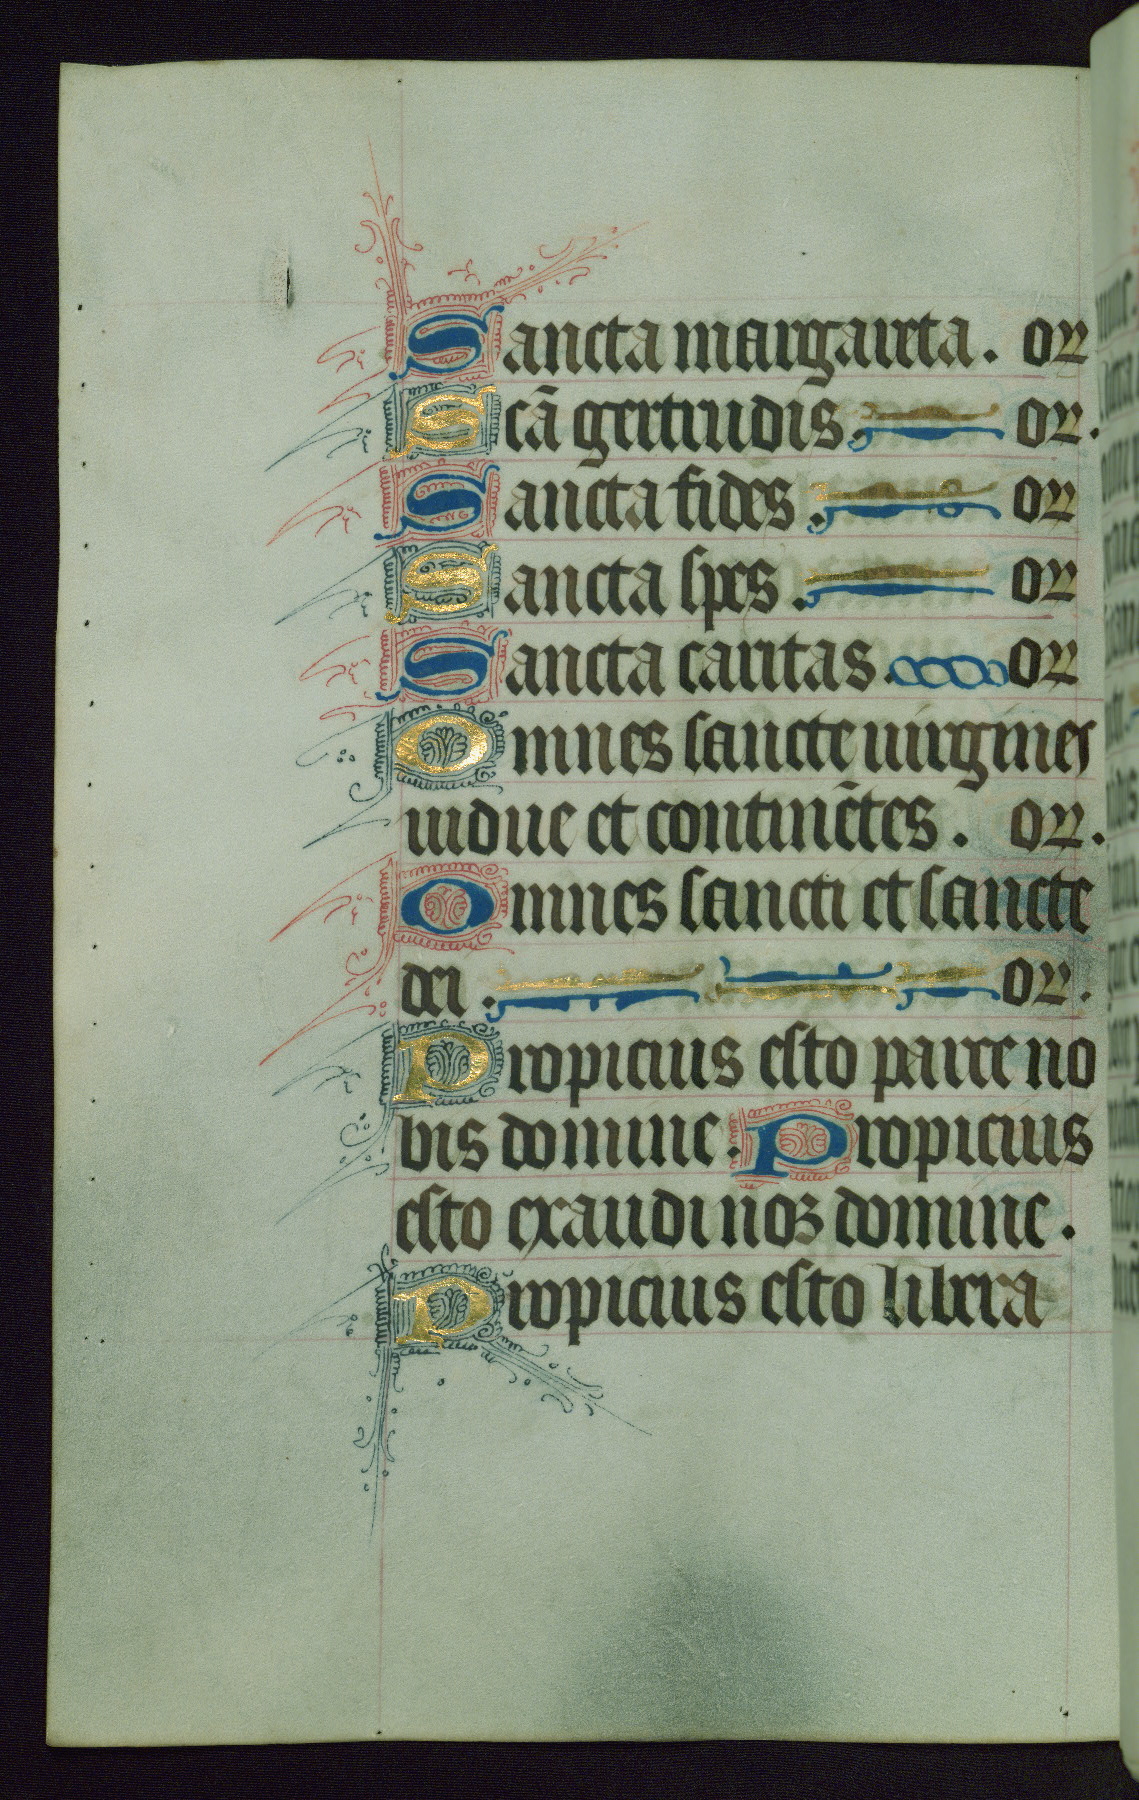 Sancta margareta. or
Scā gertrudis. or.
Sancta fides. or
Sancta spes. or
Sancta caritas. or
Omnes sancte uirgines
uidue et continētes. or.
Omnes sancti et sancte
dei. or.
Propicius esto parce no
bis domine. Propicius
esto exaudi nos domine.
Propicius esto libera